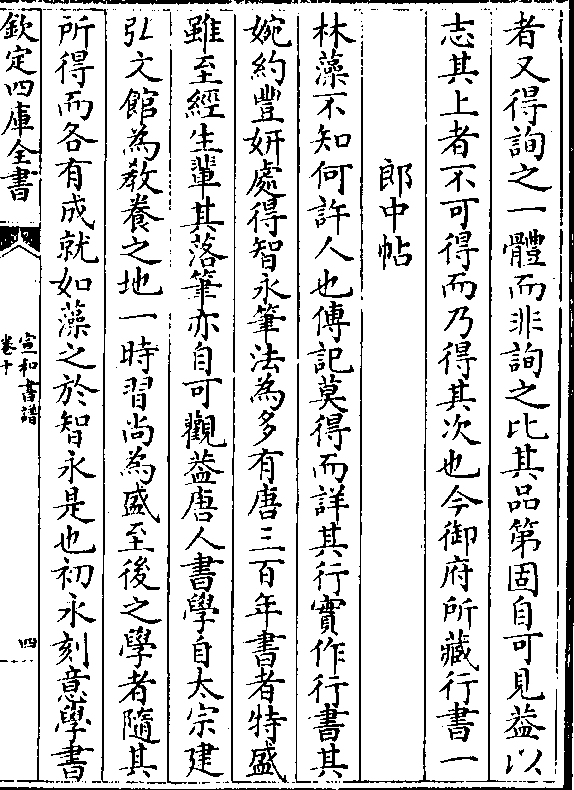 者又得詢之一體而非詢之比其品第固自可見葢以
志其上者不可得而乃得其次也今御府所藏行書一
郎中帖
林藻不知何許人也傳記莫得而詳其行實作行書其
婉約豐妍處得智永筆法為多有唐三百年書者特盛
雖至經生輩其落筆亦自可觀葢唐人書學自太宗建
弘文館為教養之地一時習尚為盛至後之學者隨其
所得而各有成就如藻之於智永是也初永刻意學書
欽定四庫全書
宣和書譜
卷十
四